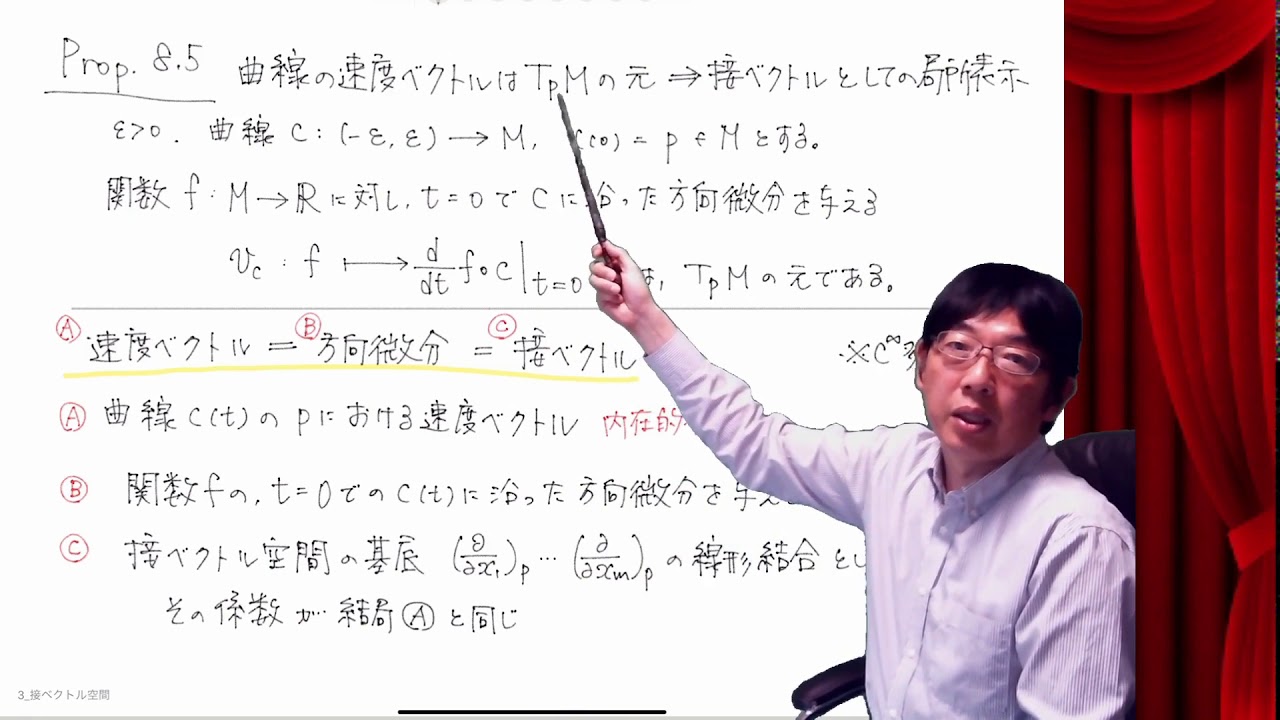 Prop. 8.5 曲線の速度ベクトルは TpM の元 ⇒ 接ベクトルとしての局所表示
ε>0. 曲線 c : (-ε, ε) → M, c(0) = p ∈ M とする。
関数 f : M → ℝ に対し, t=0 で c に沿った方向微分を与える
v_c : f ↦ d/dt f∘c |t=0 は, TpM の元である。
Ⓐ 速度ベクトル = Ⓑ 方向微分 = Ⓒ 接ベクトル ※C^∞
Ⓐ 曲線 c(t) の p における速度ベクトル 内在的
Ⓑ 関数 f の, t=0 での c(t) に沿った方向微分を与え
Ⓒ 接ベクトル空間の基底 (∂/∂x₁)p … (∂/∂xm)p の線形結合とし
その係数が結局 Ⓐ と同じ
3_接ベクトル空間